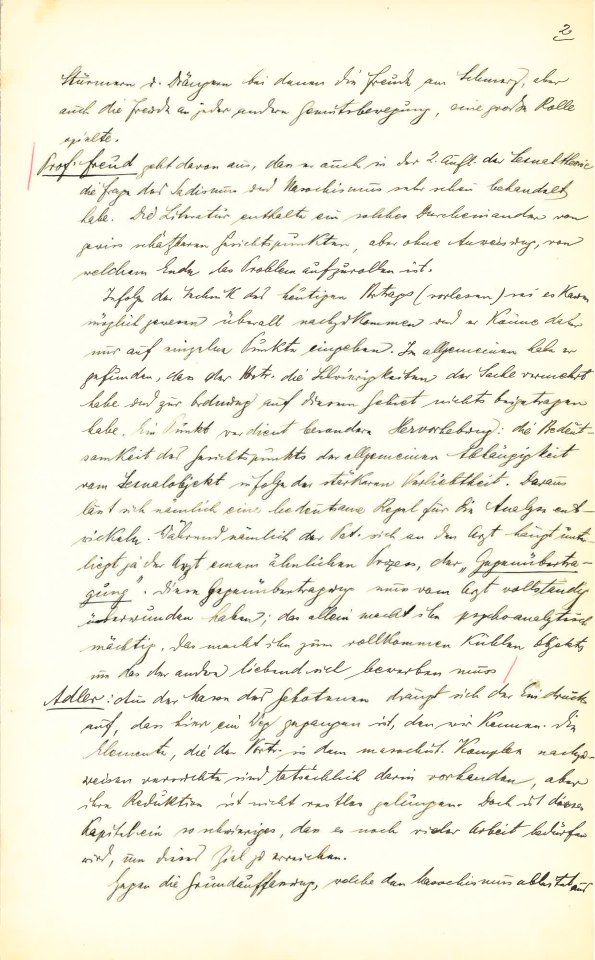 2
Stürmern u. Drängern bei denen die Freude am Schmerz, aber
auch die Freude an jeder andern Gemütsbewegung, eine große Rolle
spielte.
Prof. Freud geht davon aus, dass er auch in der 2. Aufl. der Sexualtheorie
die Frage des Sadismus und Masochismus sehr schön behandelt
habe. Die Literatur enthalte ein solches Durcheinander von
gewiss schätzbaren Gesichtspunkten, aber ohne Anweisung, von
welchem Ende das Problem aufzurollen ist.
Infolge der Technik des heutigen Vortrags (vorlesen) sei es kaum
möglich gewesen überall nachzukommen und er könne daher
nur auf einzelne Punkte eingehen. Im allgemeinen habe er
gefunden, dass der Vortr. die Schwierigkeiten der Sache vermehrt
habe und zur Ordnung auf diesem Gebiet nichts beigetragen
habe. Ein Punkt verdient besondere Hervorhebung: die Bedeut-
samkeit des Gesichtspunkts der allgemeinen Abhängigkeit
vom Sexualobjekt infolge der stärkeren Verliebtheit. Daraus
lässt sich nämlich eine bedeutsame Regel für die Analyse ent-
wickeln. Während nämlich der Pat. sich an den Arzt hängt unter-
liegt ja der Arzt einem ähnlichen Prozess, der „Gegenübertra-
gung". Diese Gegenübertragung muss vom Arzt vollständig
überwunden haben; das allein macht ihn psychoanalytisch
mächtig. Das macht ihn zum vollkommen kühlen Objekt,
um das der andere liebend sich bewerben muss
Adler: Aus der Masse des Gebotenen drängt sich der Eindruck
auf, dass hier ein Weg gegangen ist, den wir kennen. Die
Elemente, die der Vortr. in dem masochist. Komplex nachzu-
weisen versuchte sind tatsächlich darin vorhanden, aber
ihre Reduktion ist nicht restlos gelungen. Doch ist dieses
Kapitel ein so schwieriges, dass es noch vieler Arbeit bedürfen
wird, um dieses Ziel zu erreichen.
Gegen die Grundauffassung, welche den Masochismus ableitet aus